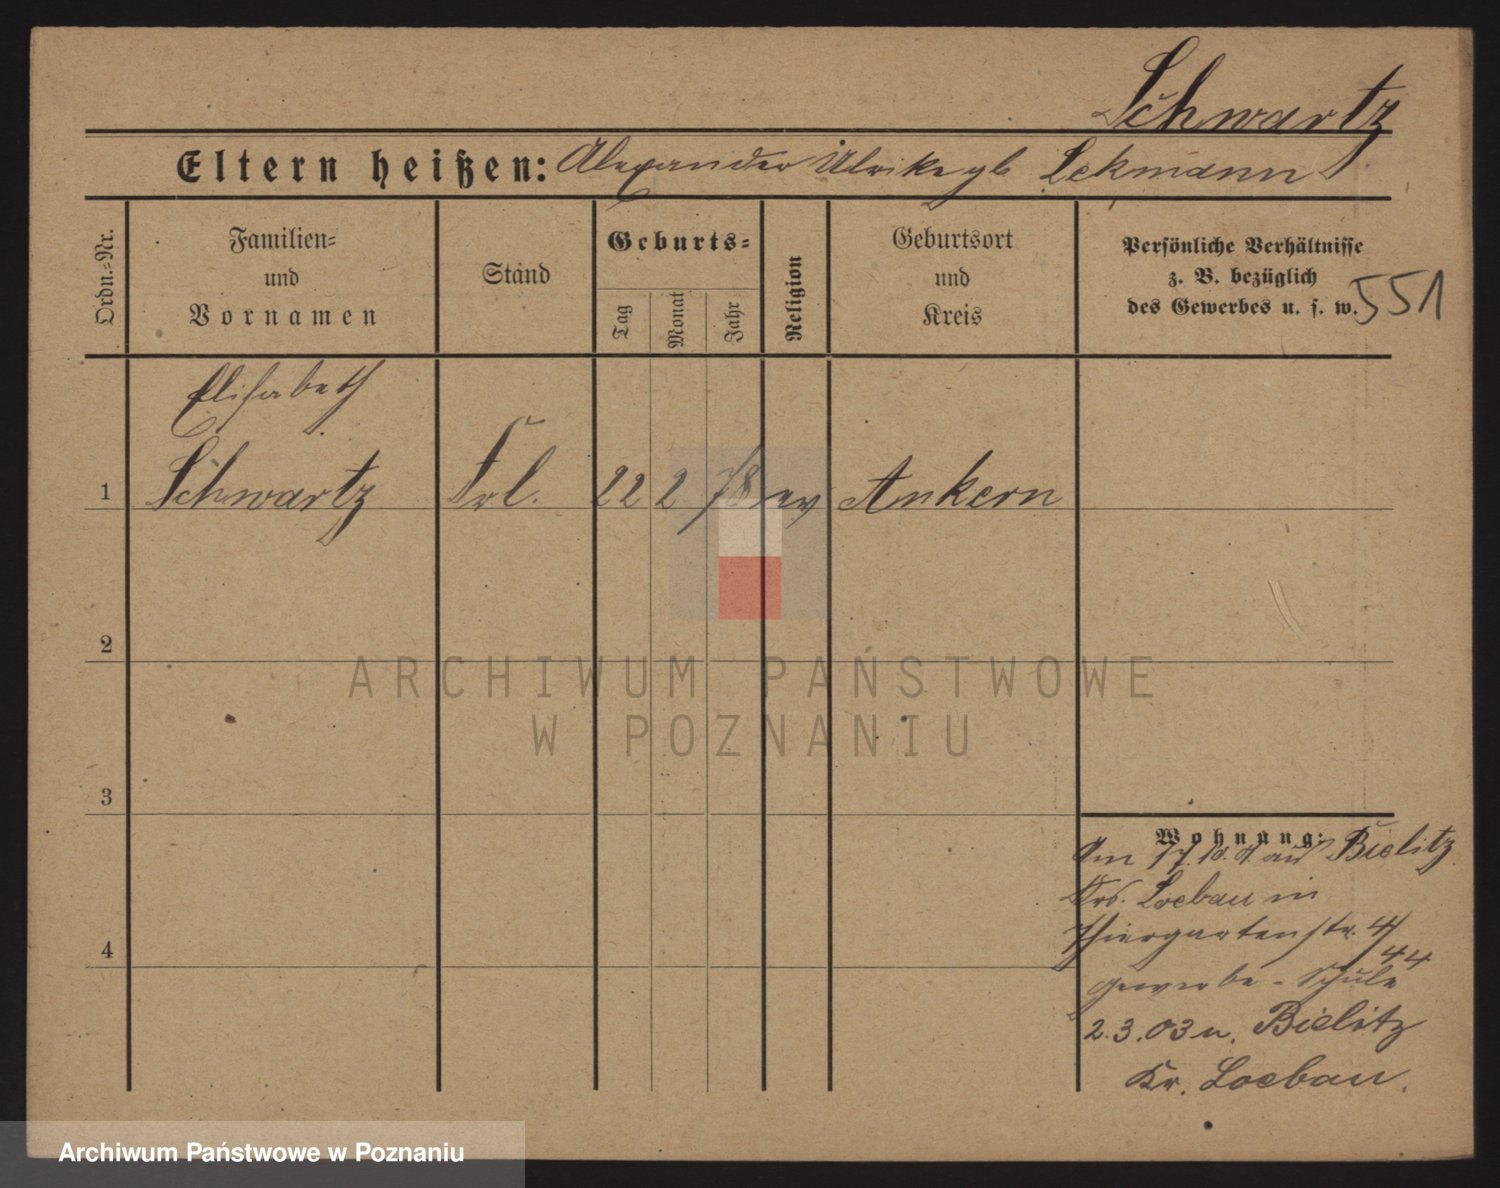 Schwartz
Eltern heißen: Alexander Ulrike gb Lekmann
Ordn.=Nr.
Familien=
und
Vornamen
Stand
Geburts=
Tag
Monat
Jahr
Religion
Geburtsort
und
Kreis
Persönliche Verhältnisse
z. B. bezüglich
des Gewerbes u. s. w.
551
Elisabeth
1 Schwartz Frl. 22 2 78 ev Ankern
2
3
4
Wohnung:
Am 17.10. aus Bielitz
Krs. Loebau in
Thiergartenstr. 4
44
Gewerbe-Schule
2.3.03 n. Bielitz
Kr. Loebau.
ARCHIWUM PAŃSTWOWE
W POZNANIU
Archiwum Państwowe w Poznaniu